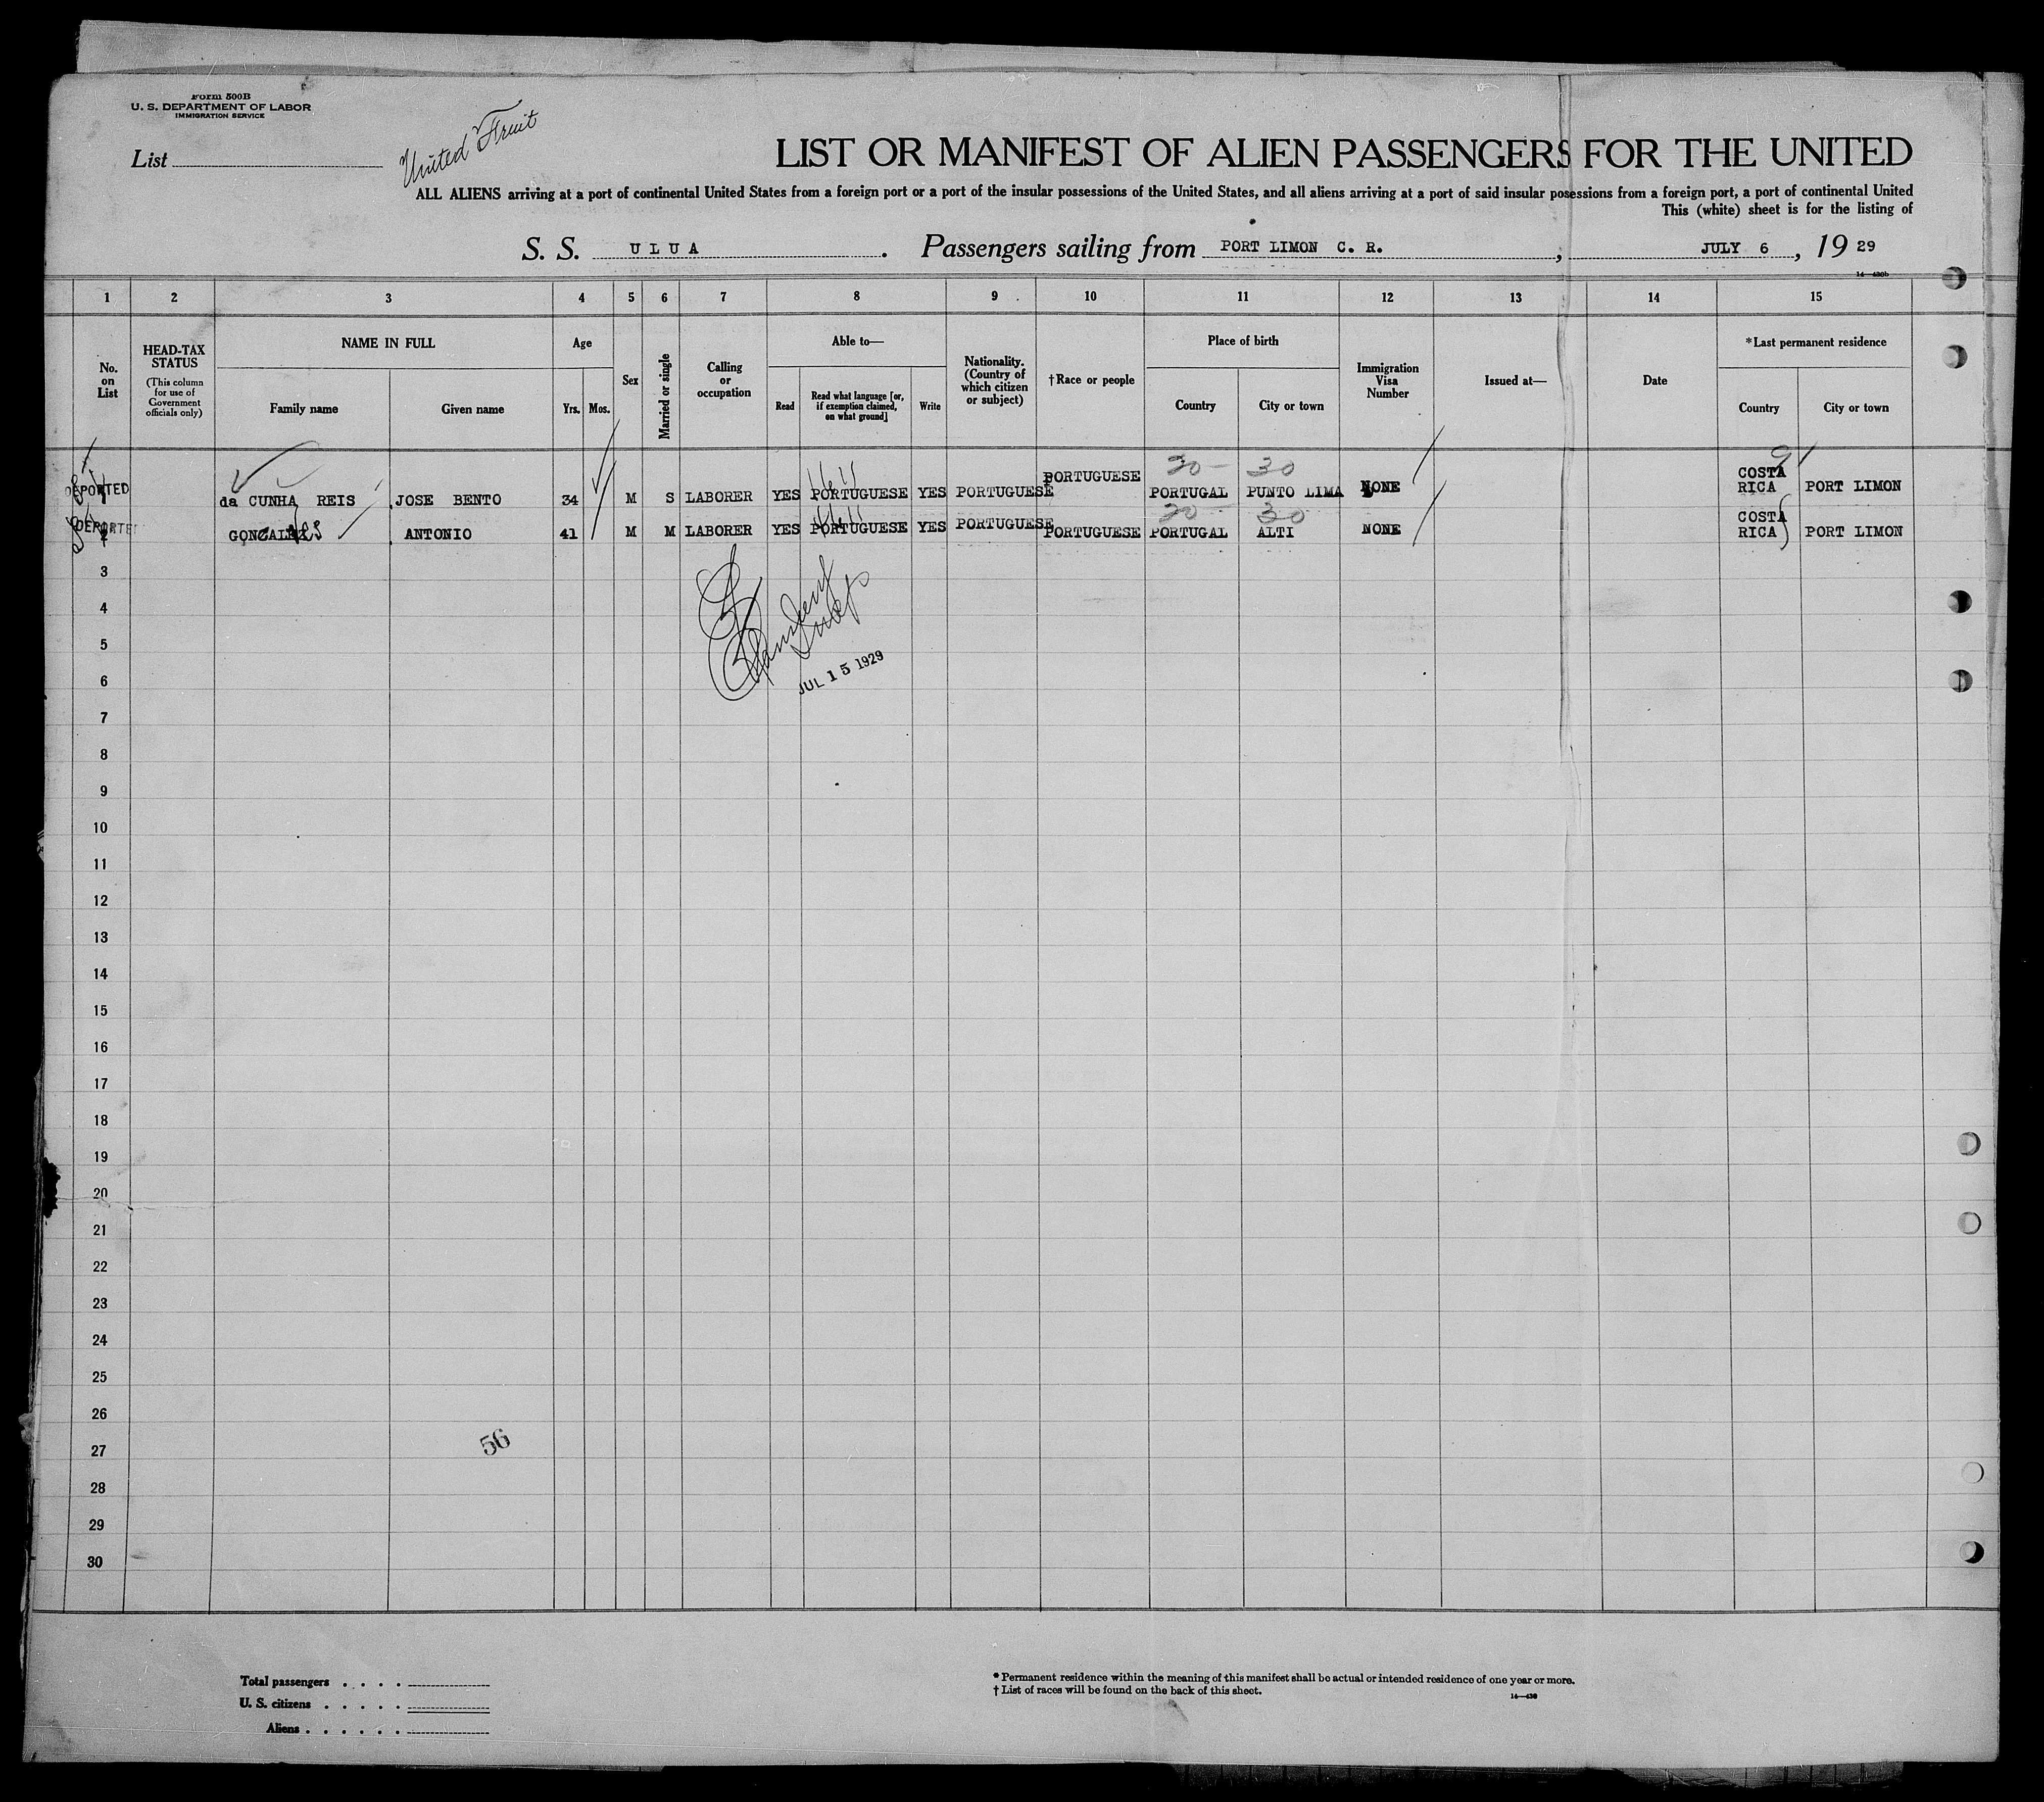 Form 500B
U. S. DEPARTMENT OF LABOR
IMMIGRATION SERVICE
List
United Fruit
LIST OR MANIFEST OF ALIEN PASSENGERS FOR THE UNITED
ALL ALIENS arriving at a port of continental United States from a foreign port or a port of the insular possessions of the United States, and all aliens arriving at a port of said insular posessions from a foreign port, a port of continental United
This (white) sheet is for the listing of
S. S. ULUA. Passengers sailing from PORT LIMON C. R., JULY 6, 19 29
14—430b
1 2 3 4 5 6 7 8 9 10 11 12 13 14 15
No. on List
HEAD-TAX STATUS
(This column for use of Government officials only)
NAME IN FULL
Family name Given name
Age
Yrs. Mos.
Sex
Married or single
Calling or occupation
Able to—
Read
Read what language [or, if exemption claimed, on what ground]
Write
Nationality. (Country of which citizen or subject)
†Race or people
Place of birth
Country City or town
Immigration Visa Number
Issued at—
Date
*Last permanent residence
Country City or town
DEPORTED
1 da CUNHA REIS JOSE BENTO 34 M S LABORER YES PORTUGUESE YES PORTUGUESE PORTUGUESE 30 PORTUGAL 30 PUNTO LIMA NONE COSTA RICA PORT LIMON
DEPORTED
2 GONCALVES ANTONIO 41 M M LABORER YES PORTUGUESE YES PORTUGUESE PORTUGUESE 30 PORTUGAL 30 ALTI NONE COSTA RICA PORT LIMON
3
4
5
JUL 15 1929
6
7
8
9
10
11
12
13
14
15
16
17
18
19
20
21
22
23
24
25
26
56
27
28
29
30
Total passengers . . . .
U. S. citizens . . . . .
Aliens . . . . . .
* Permanent residence within the meaning of this manifest shall be actual or intended residence of one year or more.
† List of races will be found on the back of this sheet.
14—430